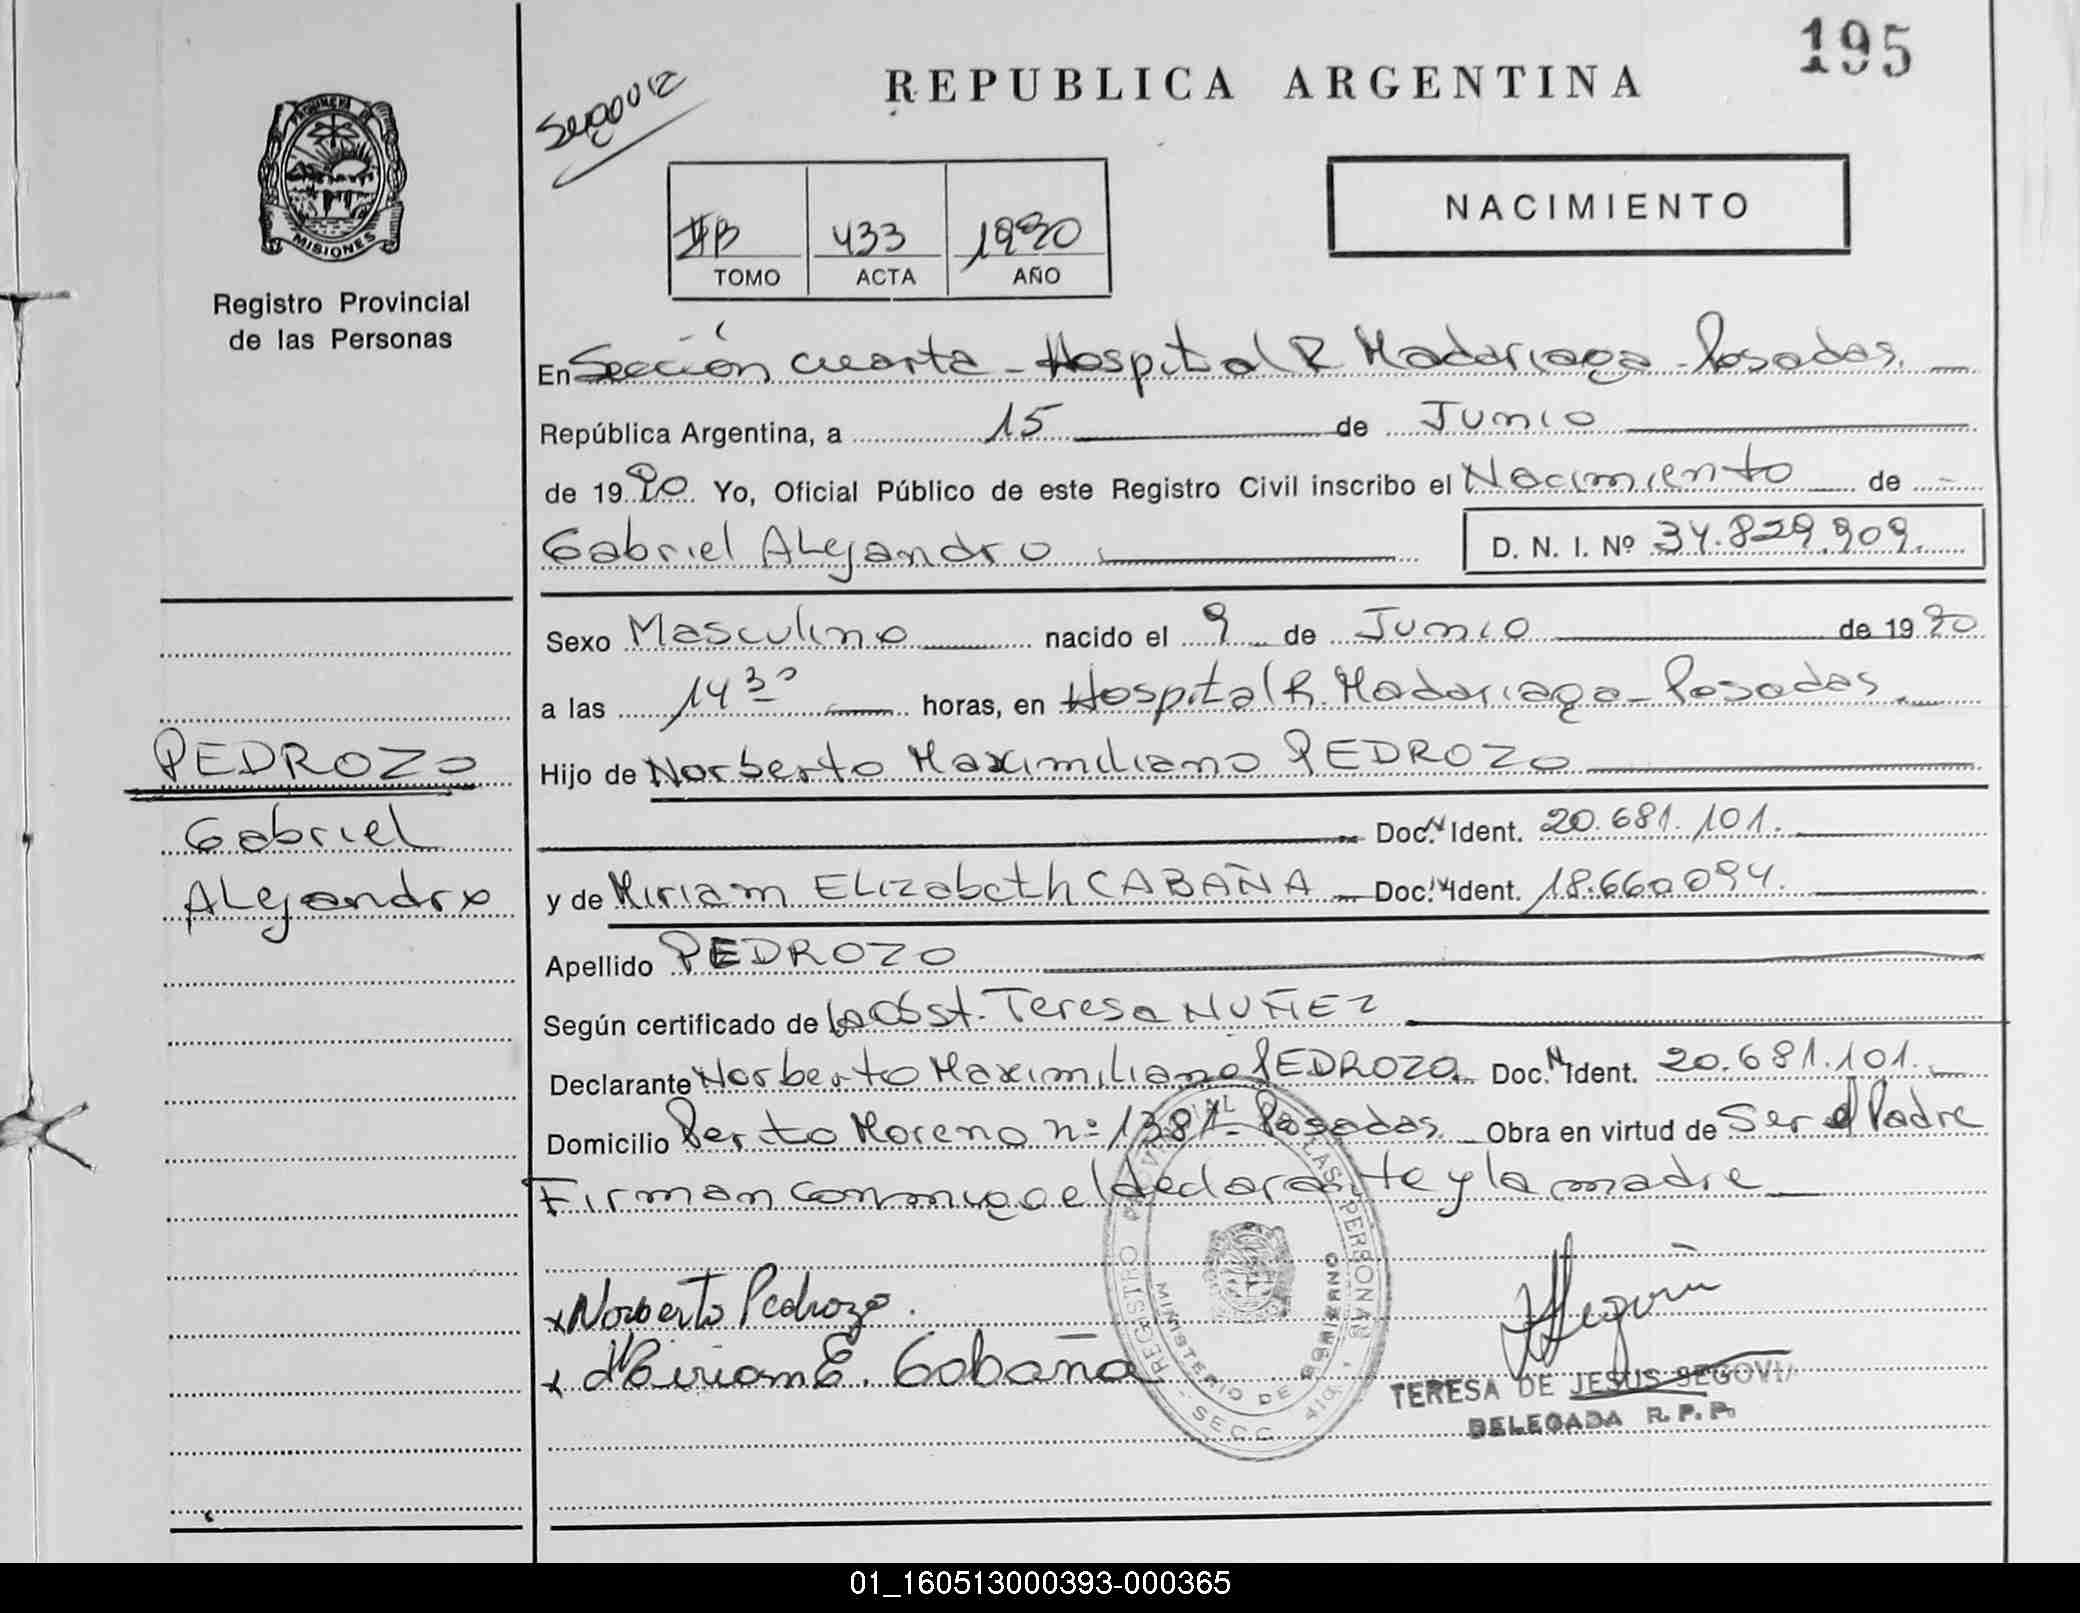 195
REPUBLICA ARGENTINA
Segovia
PROVINCIA DE
MISIONES
Registro Provincial
de las Personas
NACIMIENTO
433 1990
TOMO ACTA AÑO
En Sección cuarta - Hospital R Madariaga - Posadas.
República Argentina, a 15 de Junio
de 1990 Yo, Oficial Público de este Registro Civil inscribo el Nacimiento de
Gabriel Alejandro D. N. I. Nº 34.829.909.
Sexo Masculino nacido el 9 de Junio de 1990
a las 14 30 horas, en Hospital R. Madariaga - Posadas
PEDROZO
Gabriel
Alejandro
Hijo de Norberto Maximiliano PEDROZO
Doc. N Ident. 20.681.101.
y de Miriam Elizabeth CABAÑA - Doc. N Ident. 18.660.094.
Apellido PEDROZO
Según certificado de la Obst. Teresa NUÑEZ
Declarante Norberto Maximiliano PEDROZO Doc. N Ident. 20.681.101.
Domicilio Perito Moreno nº 1381 - Posadas Obra en virtud de Ser el Padre
Firman conmigo el declarante y la madre
x Norberto Pedrozo.
x Miriam E. Cabaña
REGISTRO PROVINCIAL DE LAS PERSONAS
MINISTERIO DE GOBIERNO
SECC. 4ta
Segovia
TERESA DE JESUS SEGOVIA
DELEGADA R. P. P.
01_160513000393-000365